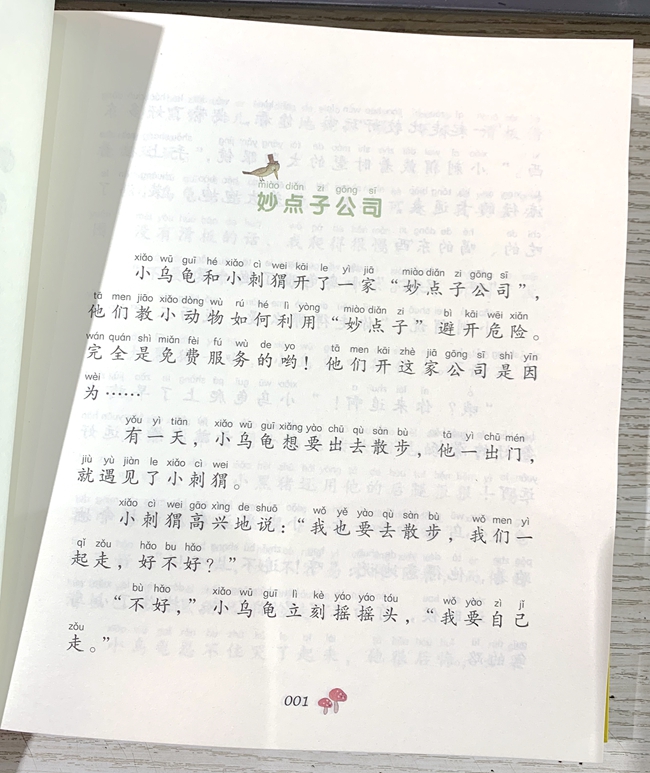 miào diǎn zi gōng sī
妙点子公司
xiǎo wū guī hé xiǎo cì wei kāi le yì jiā miào diǎn zi gōng sī
小乌龟和小刺猬开了一家“妙点子公司”，
tā men jiāo xiǎo dòng wù rú hé lì yòng miào diǎn zi bì kāi wēi xiǎn
他们教小动物如何利用“妙点子”避开危险。
wán quán shì miǎn fèi fú wù de yo tā men kāi zhè jiā gōng sī shì yīn
完全是免费服务的哟！他们开这家公司是因
wèi
为……
yǒu yì tiān xiǎo wū guī xiǎng yào chū qù sàn bù tā yì chū mén
有一天，小乌龟想要出去散步，他一出门，
jiù yù jiàn le xiǎo cì wei
就遇见了小刺猬。
xiǎo cì wei gāo xìng de shuō wǒ yě yào qù sàn bù wǒ men yì
小刺猬高兴地说：“我也要去散步，我们一
qǐ zǒu hǎo bu hǎo
起走，好不好？”
bù hǎo xiǎo wū guī lì kè yáo yáo tóu wǒ yào zì jǐ
“不好，”小乌龟立刻摇摇头，“我要自己
zǒu
走。”
001